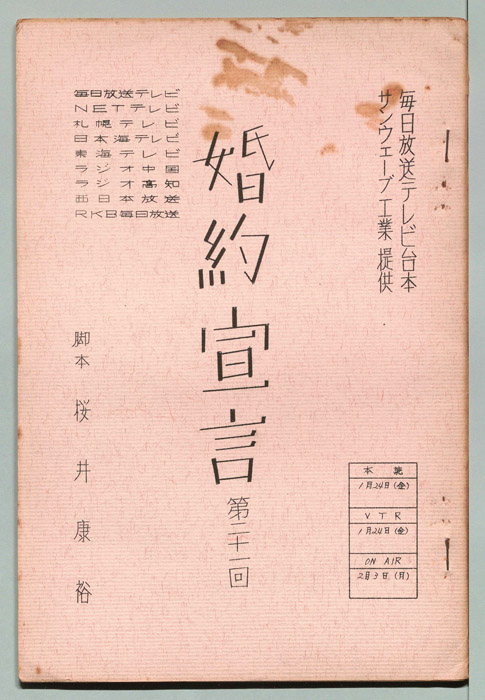 毎日放送テレビ台本
サンウェーブ工業 提供
本読
1月24日(金)
VTR
1月24日(金)
ON AIR
2月3日(月)
婚約宣言
第二十一回
毎日放送テレビ
NETテレビ
札幌テレビ
日本海テレビ
東海テレビ
ラジオ中国
ラジオ高知
西日本放送
RKB毎日放送
脚本 桜井康裕